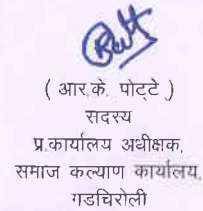 ( आर.के. पोट्टे )
सदस्य
प्र.कार्यालय अधीक्षक,
समाज कल्याण कार्यालय,
गडचिरोली